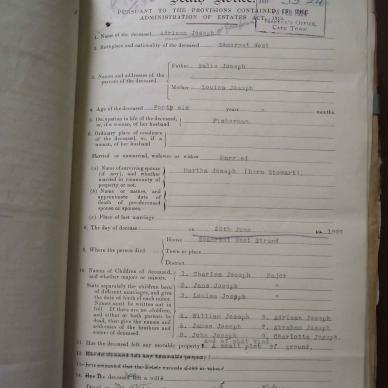 Death Notice.
PURSUANT TO THE PROVISIONS CONTAINED
ADMINISTRATION OF ESTATES ACT,
MASTER'S OFFICE,
CAPE TOWN
1. Name of the deceased Adriaan Joseph
2. Birthplace and nationality of the deceased Somerset West
3. Names and addresses of the parents of the deceased
Father Salie Joseph
Mother Louisa Joseph
4. Age of the deceased Forty six years months
5. Occupation in life of the deceased, or, if a woman, of her husband Fisherman.
6. Ordinary place of residence of the deceased, or, if a woman, of her husband
Married or unmarried, widower or widow Married
(a) Name of surviving spouse (if any), and whether married in community of property or not. Martha Joseph (born Stewart).
(b) Name or names, and approximate date of death of pre-deceased spouse or spouses.
(c) Place of last marriage
8. The day of decease on 20th June
9. Where the person died
House Somerset West Strand
Town or place
District
10. Names of Children of deceased, and whether majors or minors.
State separately the children born of different marriages, and give the date of birth of each minor. Names must be written out in full. If there are no children, and either or both parents be dead, then give the names and addresses of the brothers and sisters of deceased.
1. Charles Joseph Major
2. Jane Joseph "
3. Louisa Joseph "
4. William Joseph 5. Adriaan Joseph
6. James Joseph 7. Abraham Joseph
8. John Joseph 9. Charlotte Joseph.
11. Has the deceased left any movable property?
A small piece of ground.